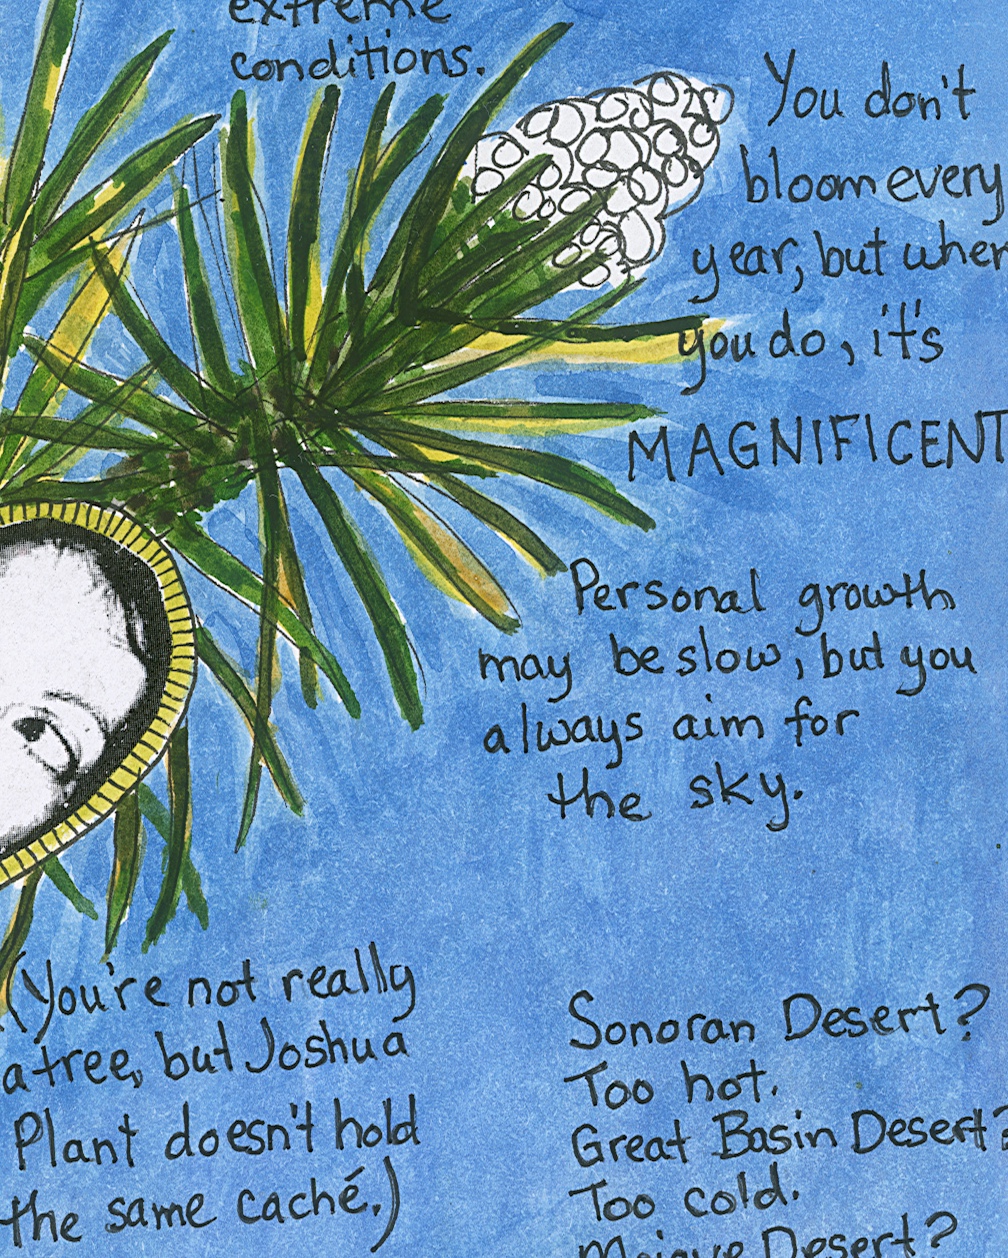 extreme
conditions.
You don't
bloom every
year, but when
you do, it's
MAGNIFICENT
Personal growth
may be slow, but you
always aim for
the sky.
(You're not really
a tree, but Joshua
Plant doesn't hold
the same caché.)
Sonoran Desert?
Too hot.
Great Basin Desert?
Too cold.
Mojave Desert?